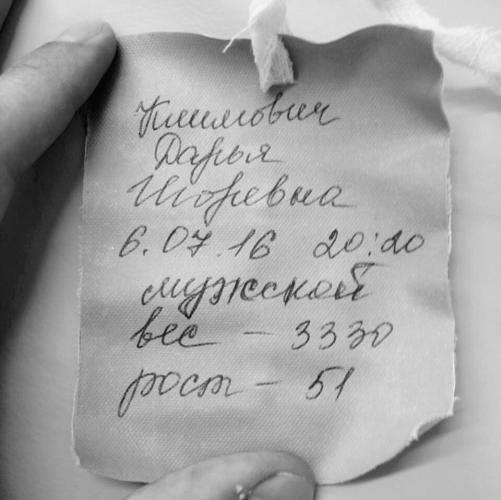 Климович
Дарья
Игоревна
6.07.16 20:20
мужской
вес - 3330
рост - 51